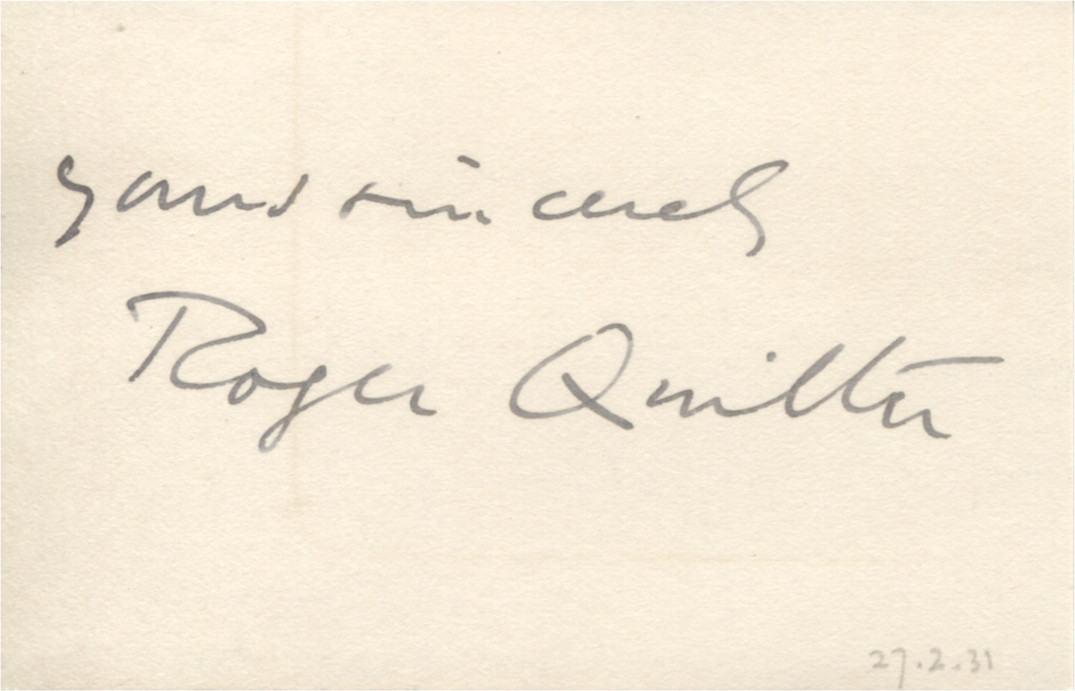 yours sincerely
Roger Quilter
27.2.31